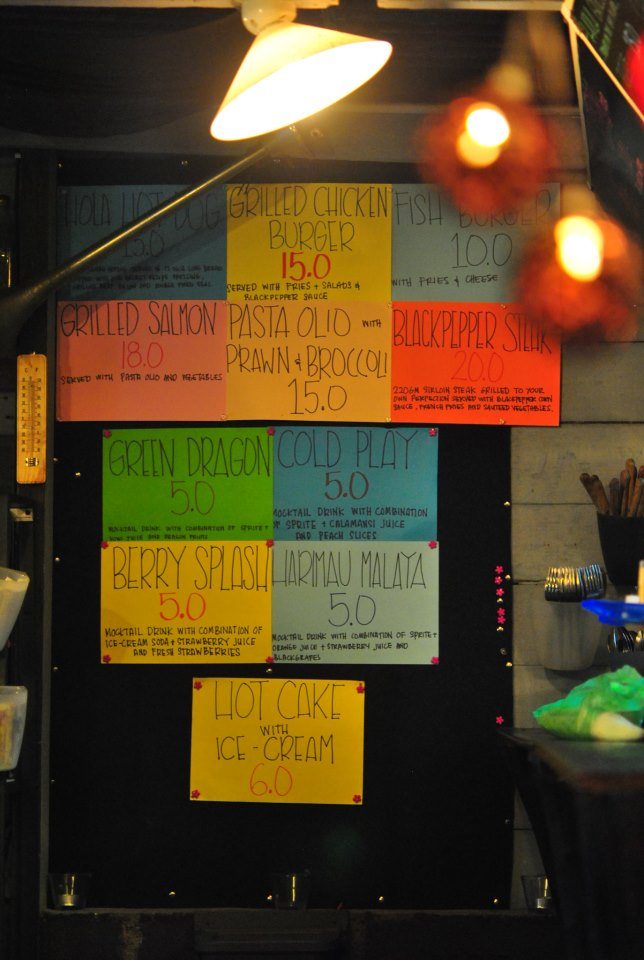 HOLA HOT DOG
15.0
GRILLED CHICKEN
BURGER
15.0
SERVED WITH FRIES + SALADS &
BLACKPEPPER SAUCE
FISH BURGER
10.0
WITH FRIES & CHEESE
GRILLED SALMON
18.0
SERVED WITH PASTA OLIO AND VEGETABLES
PASTA OLIO WITH
PRAWN & BROCCOLI
15.0
BLACKPEPPER STEAK
20.0
220GM SIRLOIN STEAK GRILLED TO YOUR
OWN PERFECTION SERVED WITH BLACKPEPPER CORN
SAUCE, FRENCH FRIES AND SAUTEED VEGETABLES.
GREEN DRAGON
5.0
MOCKTAIL DRINK WITH COMBINATION OF SPRITE +
JUICE AND DRAGON FRUITS
COLD PLAY
5.0
MOCKTAIL DRINK WITH COMBINATION
OF SPRITE + CALAMANSI JUICE
AND PEACH SLICES
BERRY SPLASH
5.0
MOCKTAIL DRINK WITH COMBINATION OF
ICE-CREAM SODA + STRAWBERRY JUICE
AND FRESH STRAWBERRIES
HARIMAU MALAYA
5.0
MOCKTAIL DRINK WITH COMBINATION OF SPRITE +
ORANGE JUICE + STRAWBERRY JUICE AND
BLACKGRAPES
HOT CAKE
WITH
ICE-CREAM
6.0